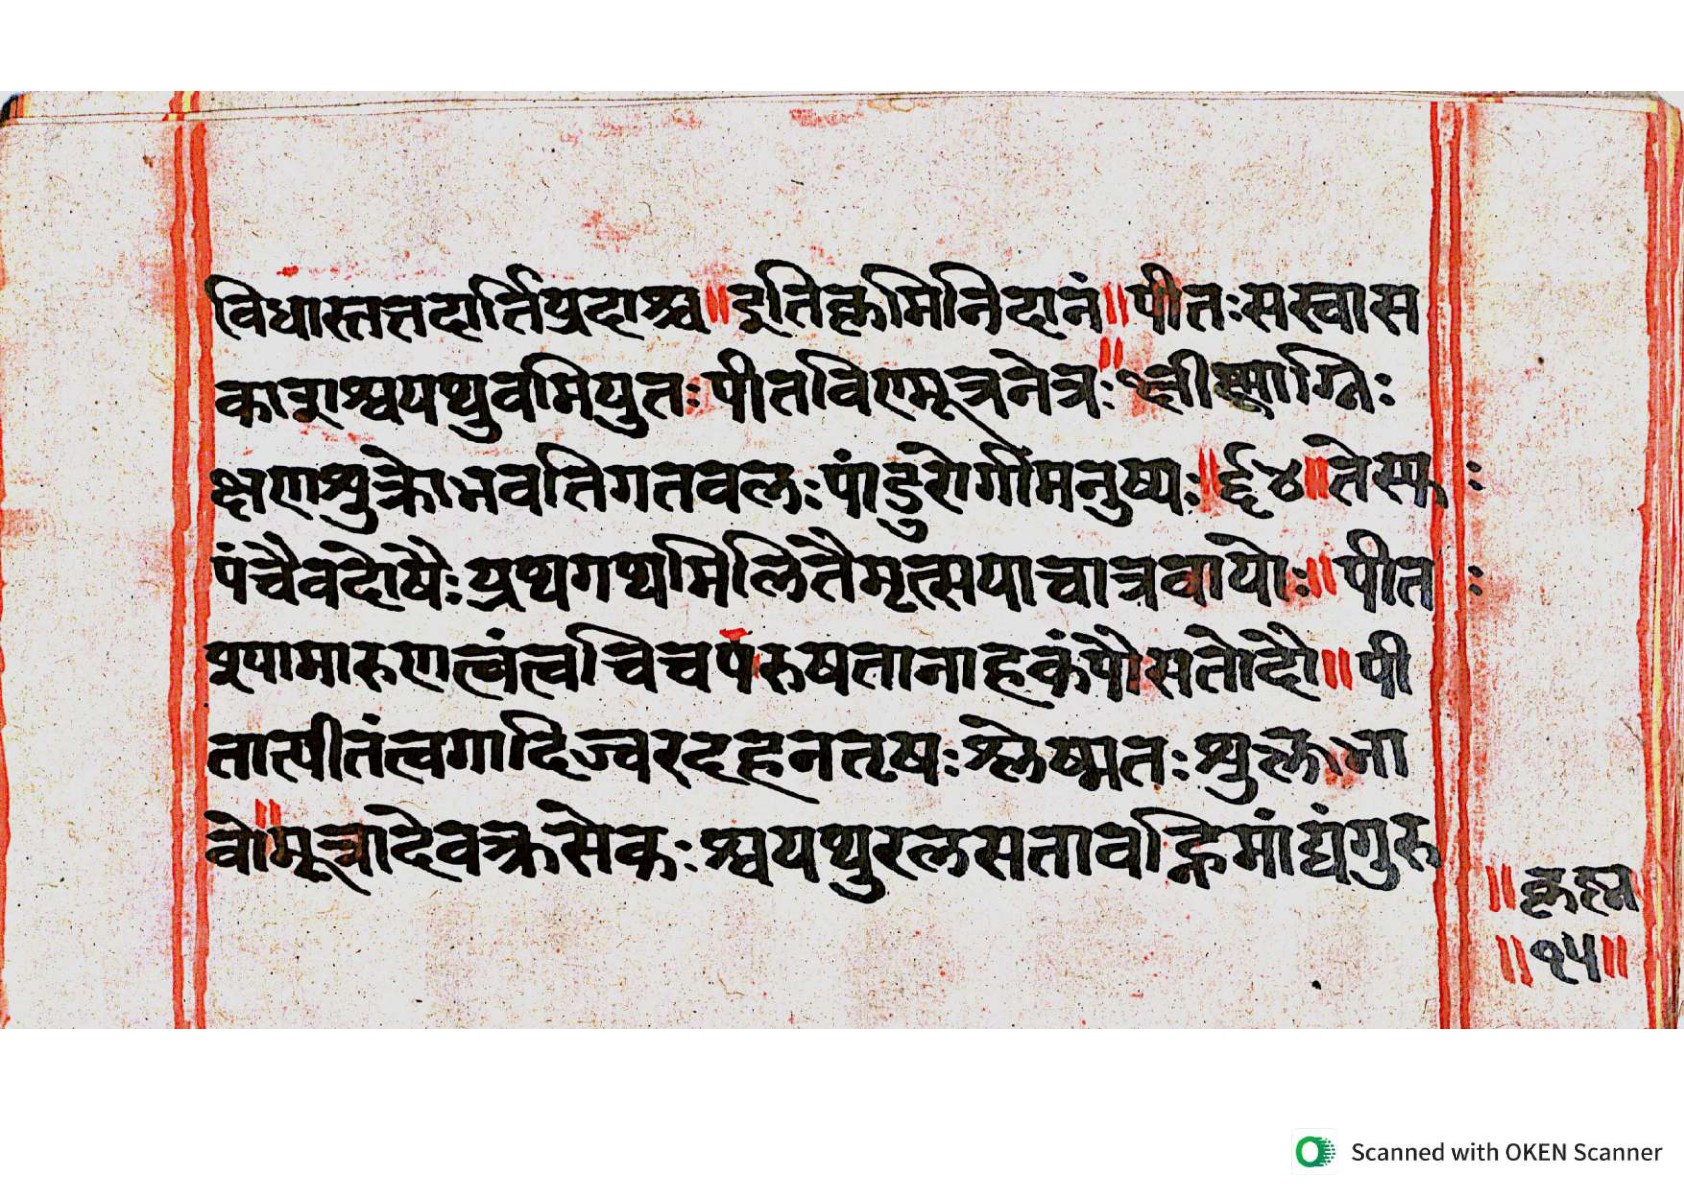 विधास्तत्तदार्तिप्रदाश्च॥इतिकृमिनिदानं॥पीतःसस्वास
काशश्वयथुवमियुतःपीतविण्मूत्रनेत्रः॥क्षीणाग्निः
क्षणशुक्रोभवतिगतवलःपांडुरोगीमनुष्यः॥ ॥तेस्युः
पंचैवदोषैःप्रथगथमिलितैमृत्सयाचात्रवायोः॥पीतः
श्यामारुणत्वंत्वचिचपरुषतानाहकंपौसतोदौ॥पी
तात्पीतंत्वगादिज्वरदहनतृषःश्लेष्मतःशुक्लभा
वो॥मूत्रादेवक्त्रसेकःश्वयथुरलसतावह्निमांद्यंगुरु
॥कृष्ण
॥१५॥
Scanned with OKEN Scanner